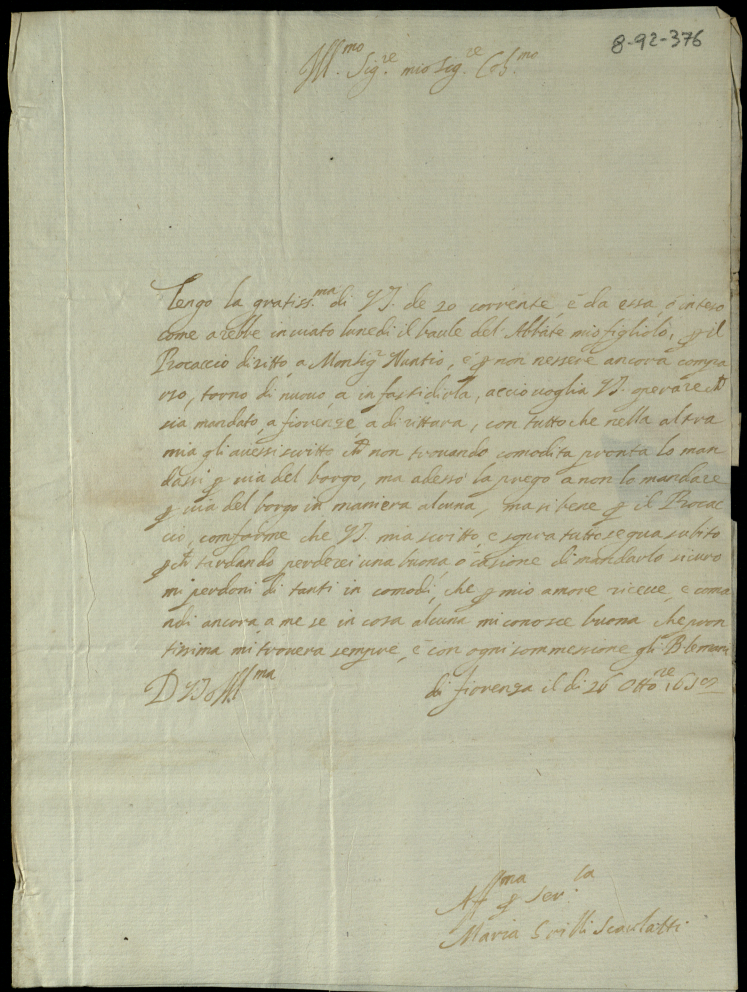 8-92-376
Ill.mo Sig.re mio Sig.re Col.mo
Tengo la gratiss.ma di VS. de 20 corrente è da essa, ò inteso
come arebbe inviato lunedi il baule del Abbate mio figliolo, p il
Procaccio diritto, a Monsig.r Nuntio, e p non nessere ancora compa
rso, torno di nuovo, a infastidirla, accio voglia VS. operare ch
sia mandato, a fiorenze, a dirittura, con tutto che nella altra
mia gli avessi scritto ch non trovando comodita pronta lo man
dassi p via del borgo, ma adesso la prego a non lo mandare
p via del borgo in maniera alcuna, ma si bene p il Procac
cio, conforme che VS. mia scritto, e sopra tutto segua subito
p ch tardando perderei una buona ocasione di mandarlo sicuro
mi perdoni di tanti in comodi, che p mio amore riceve, e coma
ndi ancora, a me se in cosa alcuna mi conosce buona che pron
tissima mi trovera sempre, è con ogni sommessione gli B le mani
D VS Ill.ma
di fiorenza il di 26 Otto.re
Aff.ma p Ser.la
Maria Scarlatti